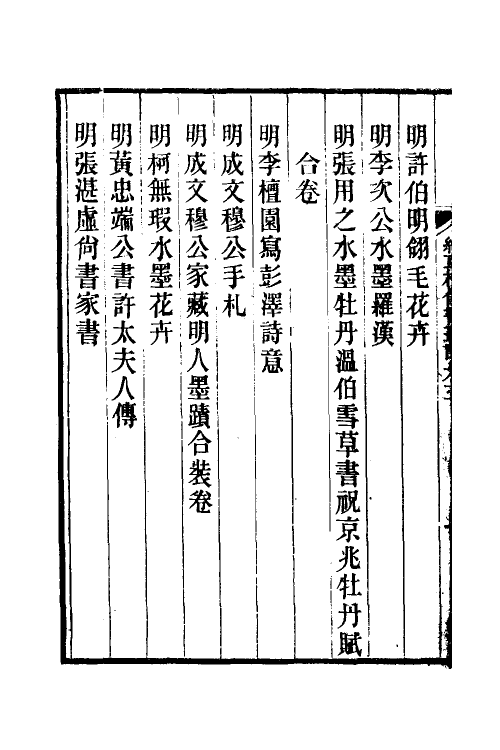 明許伯明翎毛花卉
明李次公水墨羅漢
明張用之水墨牡丹溫伯雪草書祝京兆牡丹賦
合卷
明李檀園寫彭澤詩意
明成文穆公手札
明成文穆公家藏明人墨蹟合裝卷
明柯無瑕水墨花卉
明黃忠端公書許太夫人傳
明張湛虛尙書家書